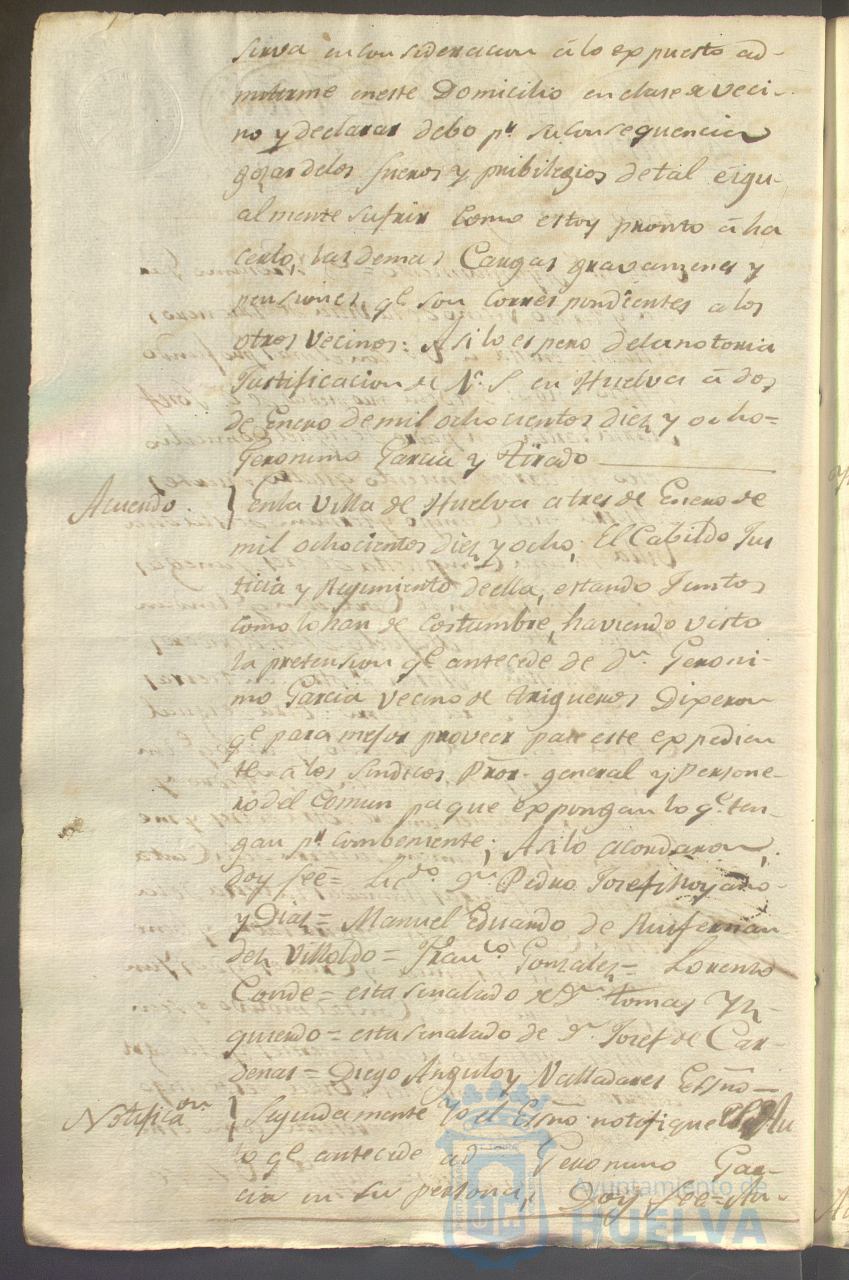 sirva en consideracion á lo expuesto ad-
mitirme en este Domicilio en clase de veci-
no y declarar debo pr. su consequencia
gozar de los fueros y pribilegios de tal é igu-
almente sufrir como estoy pronto á ha
cerlo, las demas Cargas gravamenes y
pensiones, qe. son correspondientes a los
otros vecinos: Asi lo espero de la notoria
Justificacion de V. S. en Huelva á dos
de Enero de mil ochocientos diez y ocho=
Geronimo Garcia y Tirado
Acuerdo } En la Villa de Huelva a tres de Enero de
mil ochocientos diez y ocho, El Cabildo Jus
ticia y Regimiento de ella, estando Juntos
como lo han de costumbre, haviendo visto
la pretension qe. antecede de dn. Geroni-
mo Garcia vecino de trigueros Dixeron
qe. para mejor proveer pase este expedien
te a los Sindicos Pror. general y Persone-
ro del Comun pa que expongan lo qe. ten-
gan pr. combeniente; Asi lo acordaron,
doy fee= Licdo. Dn. Pedro Josef Moyano
y Diaz= Manuel Eduardo de Ruifernan-
dez Villoldo= Franco. Gonzalez= Lorenzo
Conde= esta señalado de Dn. tomas Yz-
quierdo= esta señalado de Dn. Josef de Car-
denas= Diego Angulo y Valladares Essno=
Notificaon. } Seguidamente Yo el Essno notifique el Au
to qe. antecede a dn. Geronimo Gar-
cia en su persona, Doy fee= An-
Ayuntamiento de
HUELVA